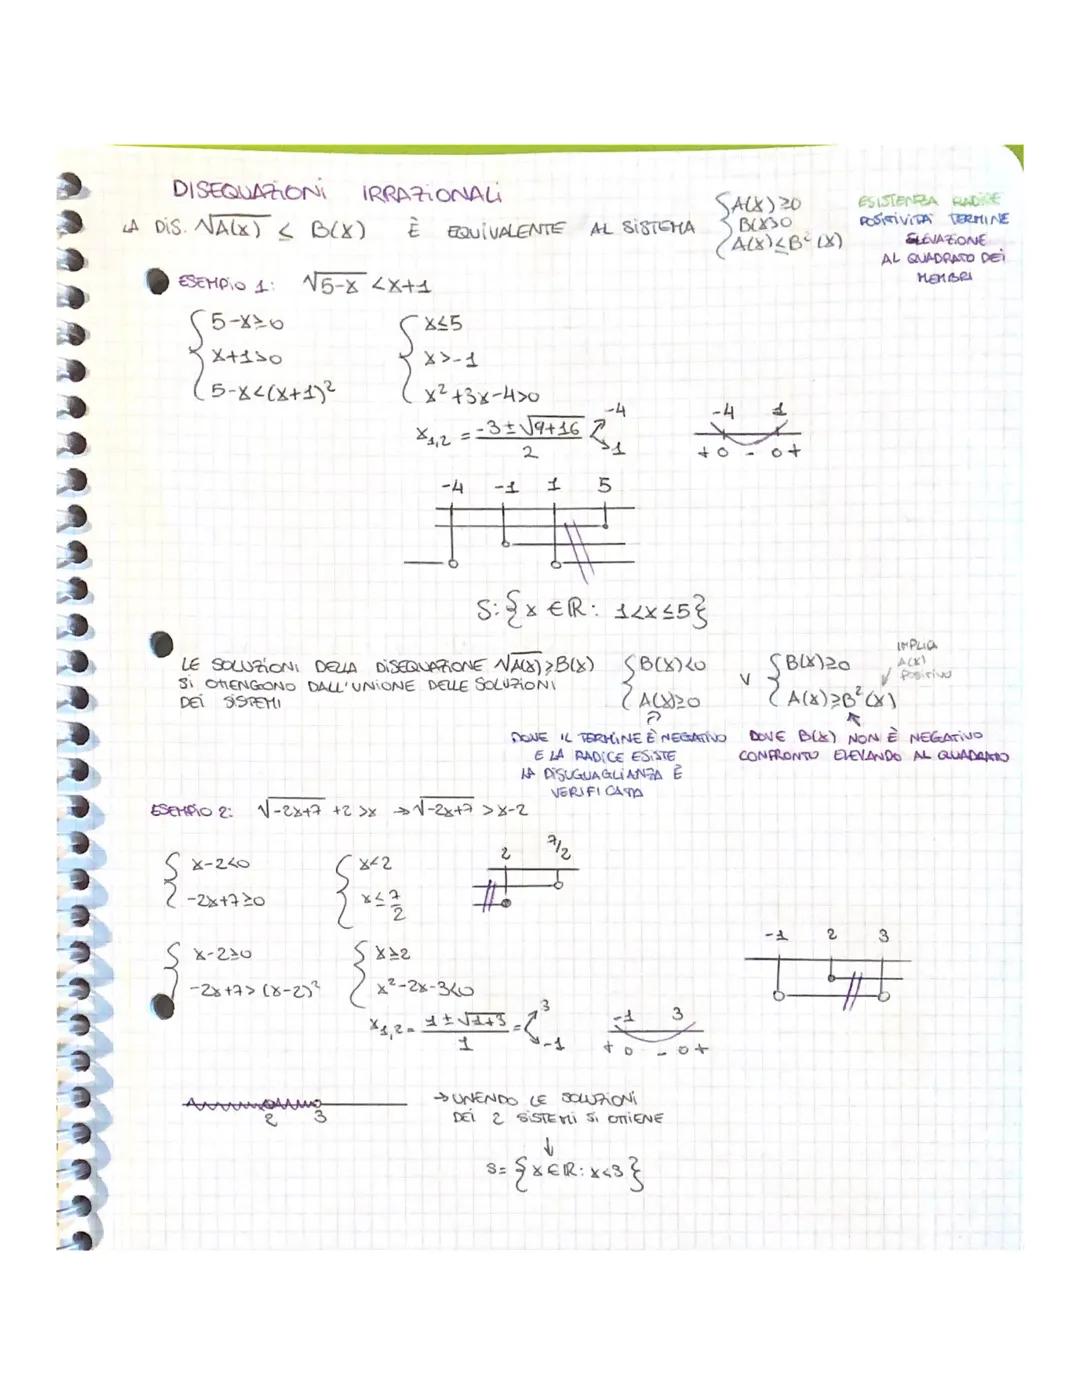 DISEQUAZIONI IRRAZIONALI
LA DIS. √A(X) ≤ B(X) È EQUIVALENTE AL SISTEMA { A(X)≥0 ESISTENZA RADICE
B(X)≥0 POSITIVITÀ TERMINE
A(X)≤B²(X) ELEVAZIONE
AL QUADRATO DEI
MEMBRI
ESEMPIO 1: √5-X <X+1
{ 5-X≥0 { X≤5
X+1>0 X>-1
5-X<(X+1)² X²+3X-4>0
X1,2 = -3±√9+16 / 2 -4 1
-4 1
+ 0 - 0 +
-4 -1 1 5
S:{x ∈ℝ: 1<x≤5}
LE SOLUZIONI DELLA DISEQUAZIONE √A(X)≥B(X) { B(X)<0 V { B(X)≥0 IMPLICA A(X) POSITIVO
SI OTTENGONO DALL'UNIONE DELLE SOLUZIONI A(X)≥0 A(X)≥B²(X)
DEI SISTEMI
DOVE IL TERMINE È NEGATIVO
E LA RADICE ESISTE
LA DISUGUAGLIANZA È
VERIFICATA
DOVE B(X) NON È NEGATIVO
CONFRONTO ELEVANDO AL QUADRATO
ESEMPIO 2: √-2X+7 +2 >X → √-2X+7 >X-2
{ X-2<0 { X<2
-2X+7≥0 X≤7/2
2 7/2
{ X-2≥0 { X≥2
-2X+7> (X-2)² X²-2X-3<0
X1,2= 1±√1+3 / 1 = 3 -1
-1 3
+ 0 - 0 +
-1 2 3
2 3
→ UNENDO LE SOLUZIONI
DEI 2 SISTEMI SI OTTIENE
↓
S= {X∈ℝ: X<3}